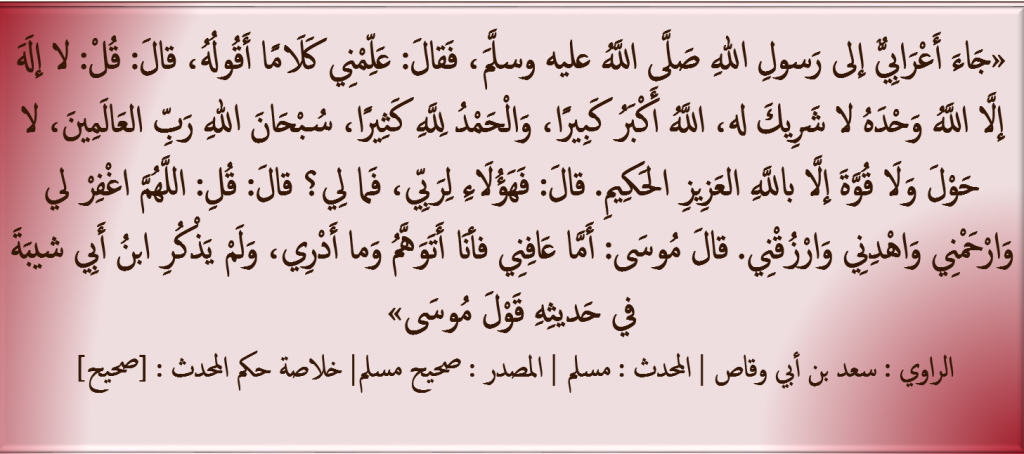 «جَاءَ أَعْرَابِيٌّ إلى رَسولِ اللهِ صَلَّى اللَّهُ عليه وسلَّمَ، فَقالَ: عَلِّمْنِي كَلَامًا أَقُولُهُ، قالَ: قُلْ: لا إلَهَ
إلَّا اللَّهُ وَحْدَهُ لا شَرِيكَ له، اللَّهُ أَكْبَرُ كَبِيرًا، وَالْحَمْدُ لِلَّهِ كَثِيرًا، سُبْحَانَ اللهِ رَبِّ العَالَمِينَ، لا
حَوْلَ وَلَا قُوَّةَ إلَّا باللَّهِ العَزِيزِ الحَكِيمِ. قالَ: فَهَؤُلَاءِ لِرَبِّي، فَما لِي؟ قالَ: قُلِ: اللَّهُمَّ اغْفِرْ لي
وَارْحَمْنِي وَاهْدِنِي وَارْزُقْنِي. قالَ مُوسَى: أَمَّا عَافِنِي فأنَا أَتَوَهَّمُ وَما أَدْرِي، وَلَمْ يَذْكُرِ ابنُ أَبِي شيبَةَ
في حَديثِهِ قَوْلَ مُوسَى»
الراوي : سعد بن أبي وقاص | المحدث : مسلم | المصدر : صحيح مسلم| خلاصة حكم المحدث : [صحيح]